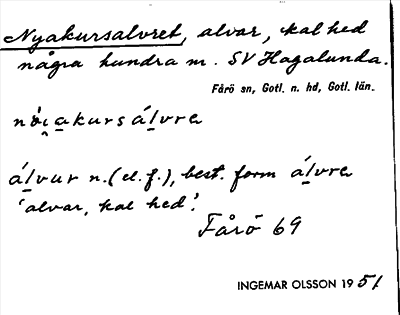 Nyakursalvret, alvar, kal hed
några hundra m. SV Hagalunda.
Fårö sn, Gotl. n. hd, Gotl. län.
nȯi̯a̱kursálvre
álvur n. (el. f.), best. form álvre
'alvar, kal hed'.
Fårö 69
INGEMAR OLSSON 1951